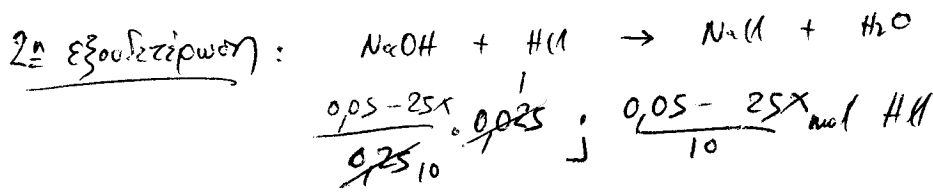 2η εξουδετέρωση : NaOH + HCl → NaCl + H₂O
(0,05 - 25x)/0,25 10 · 0,025 1 ; (0,05 - 25x)/10 mol HCl